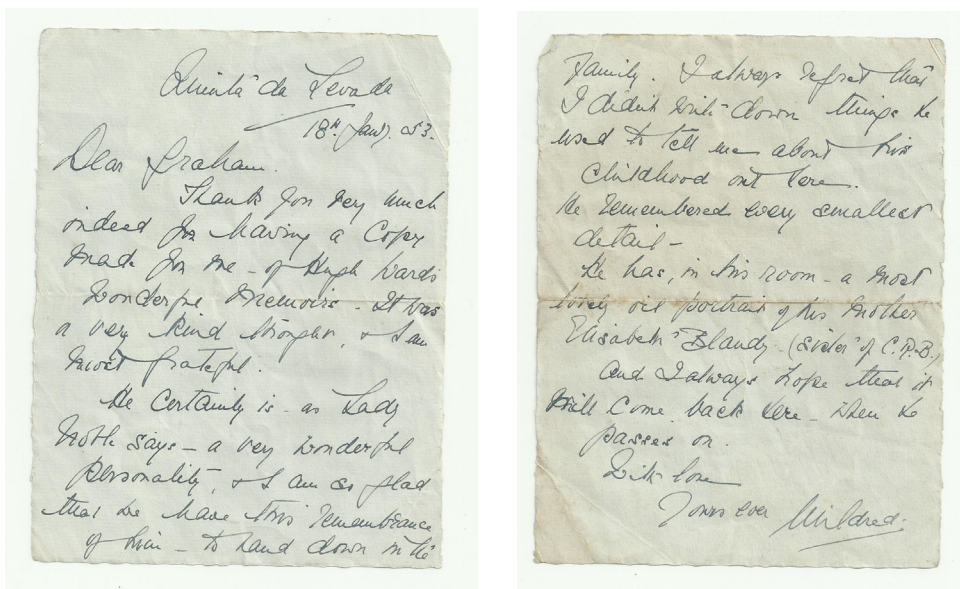 Quinta da Levada
18th Jany. 53.
Dear Graham.
Thank you very much
indeed for having a copy
made for me - of Hugh Wards
wonderful memoirs - It was
a very kind thought, & I am
most grateful.
He certainly is - as Lady
says - a very wonderful
personality, & I am so glad
that we have this remembrance
of him - to hand down in the
Family. I always regret that
I didn't write down things he
used to tell me about his
childhood out here.
He remembered every smallest
detail -
He has, in his room - a most
lovely oil portrait of his mother
Elisabeth Blandy - (sister of C.R.B.)
and I always hope that it
will come back here - when he
passes on.
With love
Yours ever Mildred.